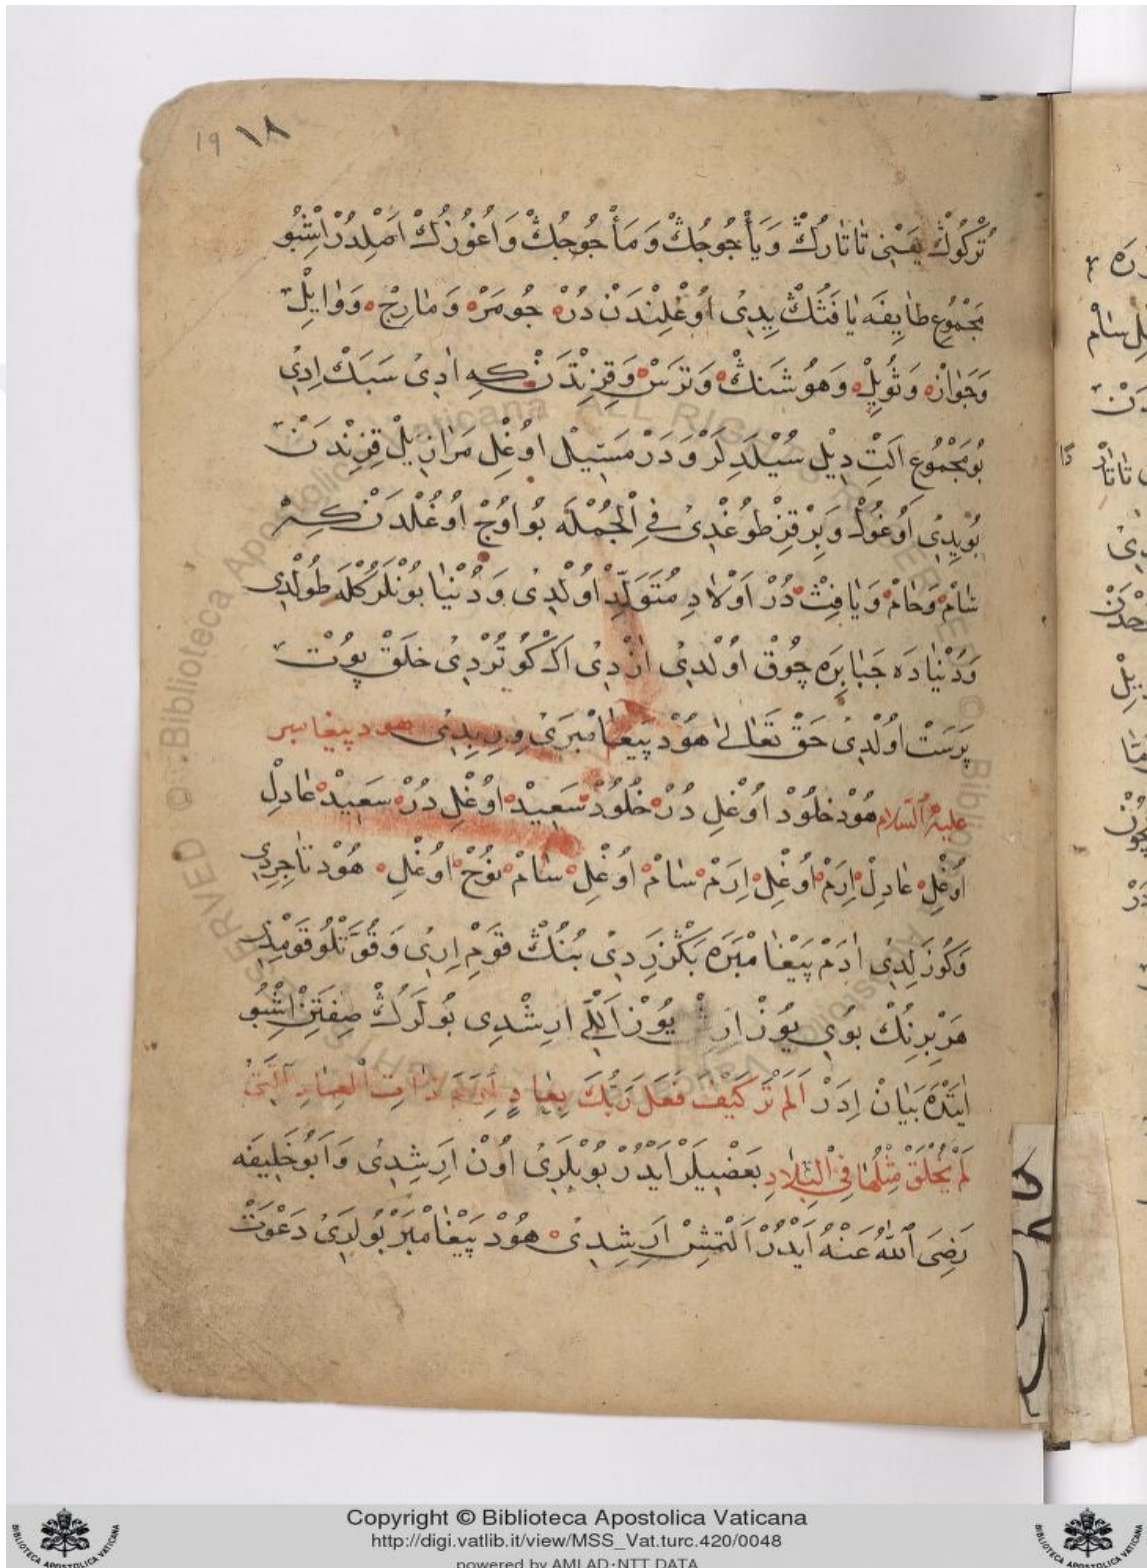 19 ١٨
تُرْكُوڭْ يَعْنِى تَاتَارُڭْ وَيَأْجُوجُڭْ وَمَأْجُوجُڭْ وَاُغُوزُڭْ اَصْلِدُرْ اُشْبُو
مَجْمُوعِ طَايِفَه يَافَثُڭْ يِدِى اُوغْلِنْدَنْ دُرْ جُومَرْ وَمَارِجْ وَوَايِلْ
وَجَوَانْ وَثُوبِلْ وَهُوشَنڭْ وَتَرَسْ وَقِزِنْدَنْ كِه ادِى سَبَكْ اِدِى
بُو مَجْمُوعِ اَلتِ دِيلْ سُيْلَدِلَرْ وَدَرْمَسِيلْ اوُغْلِ مَرَازِيلْ قِزِنْدَنْ
بُو يِدِى اُوغُوْل وَبِرْ قِزْ طُوغْدِى فِى الْجُمْلَه بُو اوُجْ اوُغُلْدَنْ كِمْ
سَامْ وَحَامْ وَيَافِثْ دُرْ اَوْلَادِ مُتَوَلِّدْ اُولْدِى وَدُنْيَا بُونْلَرُكْلَه طُولْدِى
وَدُنْيَادَه جَبَابِرَه چُوقْ اُولْدِى ازْدِى اَكْ كُوتُرْدِى خَلَقْ پُوتْ
پَرَسْتْ اُولْدِى حَقْ تَعَالَى هُودْ پَيْغَامْبَرِى وِرِبِدِى هود پيغامبر
عليه السلام هُودْ خلُودْ اوُغْلِ دُرْ خُلُودْ سَعِيدْ اوُغْلِ دُرْ سَعِيدْ عَادِلْ
اُوغْلِ عَادِلْ اِرَمْ اُوغْلِ اِرَمْ سَامْ اُوغْلِ سَامْ نُوحْ اوُغْلِ هُودْ تَاجِرِدِى
وَكُوزَلِدِى ادَمْ پَيْغَامْبَرَه بَكْزَرِدِى بُنُڭْ قَوْمِ اِرِى وَقُوَّتْلُو قَوْمِدِى
هَرْ بِرِنُڭْ بُويِ يُوزْ اَرِشْ يُوزْ اَللِّى ارِشْدِى بُولَرُڭْ صِفَتِنْ اشْبُو
ايَتْدَه بَيَانْ اِدَرْ اَلَمْ تَرَ كَيْفَ فَعَلَ رَبُّكَ بِعَادٍ اِرَمَ ذَاتِ الْعِمَادِ الَّتِى
لَمْ يُخْلَقْ مِثْلُهَا فِى الْبِلَادِ بَعْضِيلَرْ اَيْدُرْ بُويْلَرِى اوُنْ اَرِشِدِى وَاَبُو خَلِيفَه
رَضِىَ اللّٰهُ عَنْهُ اَيْدُرْ اَلْتمِشْ اَرِشِدِى هُودْ پَيْغَامْبَرْ بُولَرِى دَعْوَتْ
© Biblioteca Apostolica Vaticana ALL RIGHTS RESERVED
Copyright © Biblioteca Apostolica Vaticana
http://digi.vatlib.it/view/MSS_Vat.turc.420/0048
powered by AMLAD-NTT DATA
BIBLIOTECA APOSTOLICA VATICANA
BIBLIOTECA APOSTOLICA VATICANA